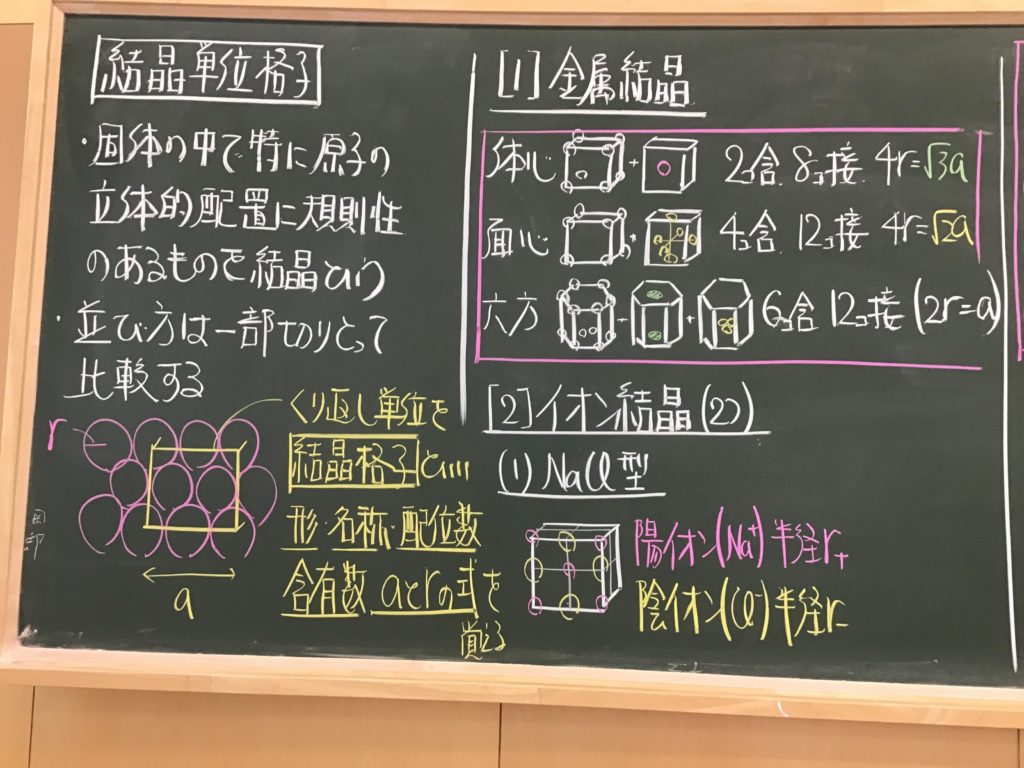 結晶単位格子
・固体の中で特に原子の
立体的配置に規則性
のあるものを結晶という
・並び方は一部切りとって
比較する
r
くり返し単位を
結晶格子といい
形・名称・配位数
含有数 aとrの式を
覚える
a
[1]金属結晶
体心 + 2コ含 8コ接 4r=√3a
面心 + 4コ含 12コ接 4r=√2a
六方 - + 6コ含 12コ接 (2r=a)
[2]イオン結晶(2つ)
(1)NaCl型
陽イオン(Na⁺)半径r₊
陰イオン(Cl⁻)半径r₋